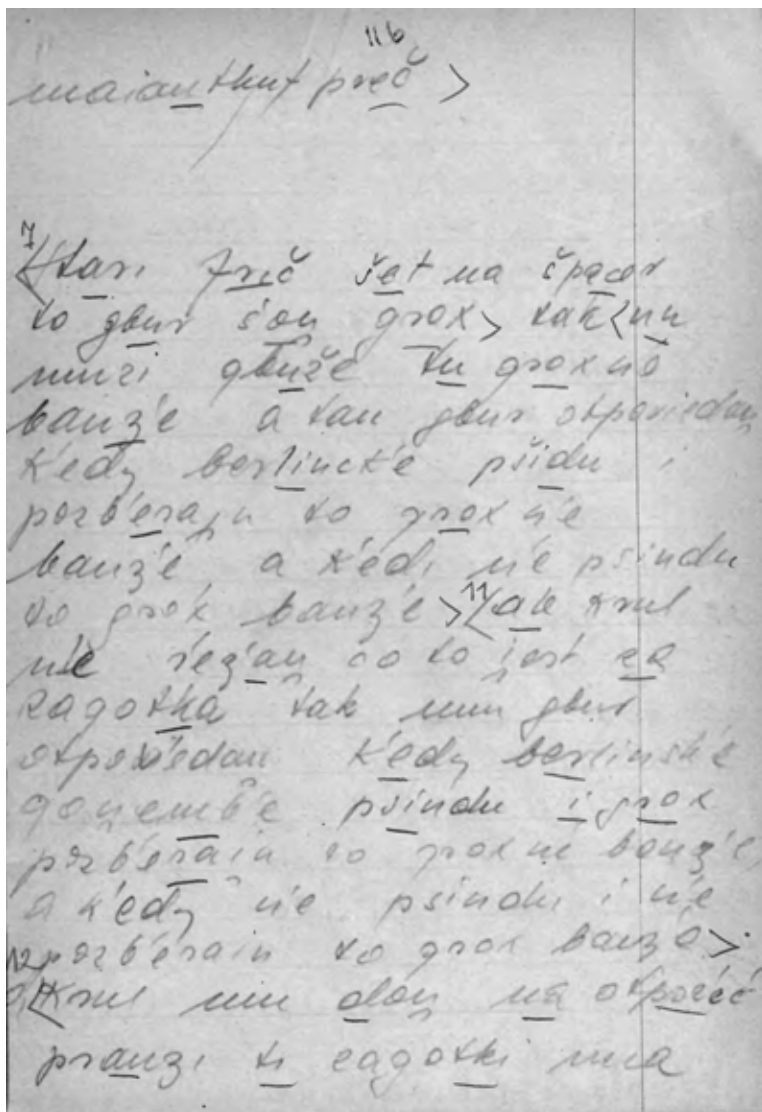 116
maiontkuf preč >
7
<stari fric šet na špacer
to gbur šou̯ grox> tak <un
muzi gbuže tu grox ńe
banʒ́e a tan gbur otpoviedau̯
ḱedy berlinck'e pšidu i
pozb'erai̯u to grox ńe
banʒ́e, a ḱedi ńe psindu
to grox banʒ́e > 11 <ale krul
ńe veʒ́au̯ co to i̯est za
zagotka tak mu gbur
otpoviedau̯ ḱedy berlinsk'e
gou̯emb'e psindu i grox
pozb'eraiu to grox ńe banʒ́e,
a ḱedy ńe psindu i ńe
pozb'eraiu to grox banʒ́e>.
12 <krul mu dou̯ na otpov́ec
pranʒi ti zagotki mia